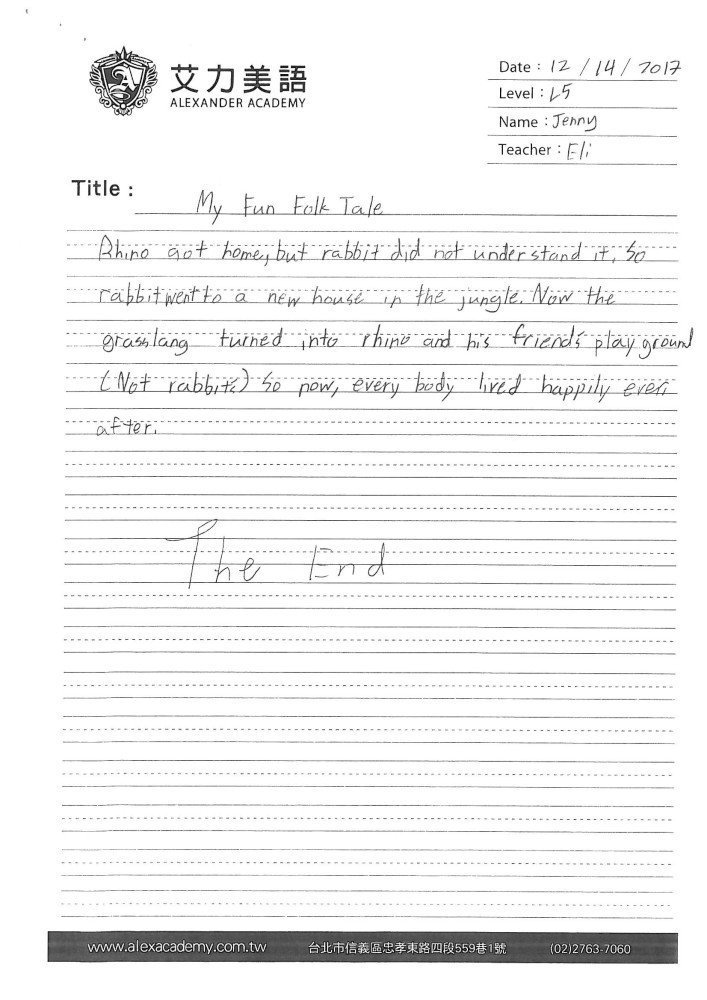 艾力美語
ALEXANDER ACADEMY
Date : 12 / 14 / 2017
Level : L5
Name : Jenny
Teacher : Eli
Title : My Fun Folk Tale
Rhino got home, but rabbit did not understand it. So
rabbit went to a new house in the jungle. Now the
grasslang turned into rhino and his friend's play ground
(Not rabbit's.) So now, every body lived happily ever
after.
The End
www.alexacademy.com.tw 台北市信義區忠孝東路四段559巷1號 (02)2763-7060